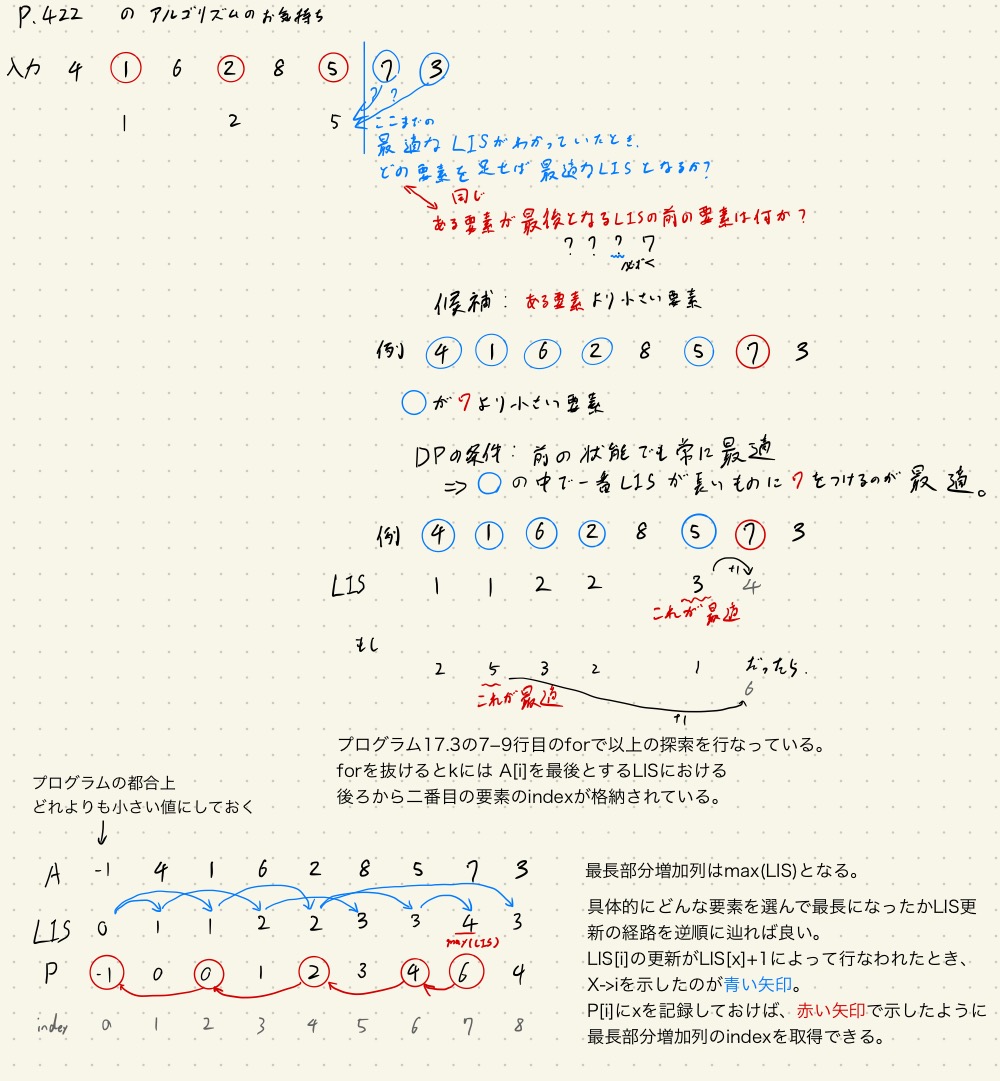 P.422 のアルゴリズムのお気持ち
入力 4 1 6 2 8 5 7 3
? ?
1 2 5
ここまでの
最適なLISがわかっていたとき、
どの要素を足せば最適なLISとなるか?
同じ
ある要素が最後となるLISの前の要素は何か?
? ? ? 7
候補: ある要素より小さい要素
例 4 1 6 2 8 5 7 3
○が7より小さい要素
DPの条件: 前の状態でも常に最適
=> ○の中で一番LISが長いものに7をつけるのが最適。
例 4 1 6 2 8 5 7 3
+1
LIS 1 1 2 2 3 4
これが最適
もし
2 5 3 2 1 だったら.
6
これが最適
+1
プログラム17.3の7–9行目のforで以上の探索を行なっている。
forを抜けるとkには A[i]を最後とするLISにおける
後ろから二番目の要素のindexが格納されている。
プログラムの都合上
どれよりも小さい値にしておく
A -1 4 1 6 2 8 5 7 3
LIS 0 1 1 2 2 3 3 4 3
max(LIS)
P -1 0 0 1 2 3 4 6 4
index 0 1 2 3 4 5 6 7 8
最長部分増加列はmax(LIS)となる。
具体的にどんな要素を選んで最長になったかLIS更
新の経路を逆順に辿れば良い。
LIS[i]の更新がLIS[x]+1によって行なわれたとき、
X->iを示したのが青い矢印。
P[i]にxを記録しておけば、赤い矢印で示したように
最長部分増加列のindexを取得できる。